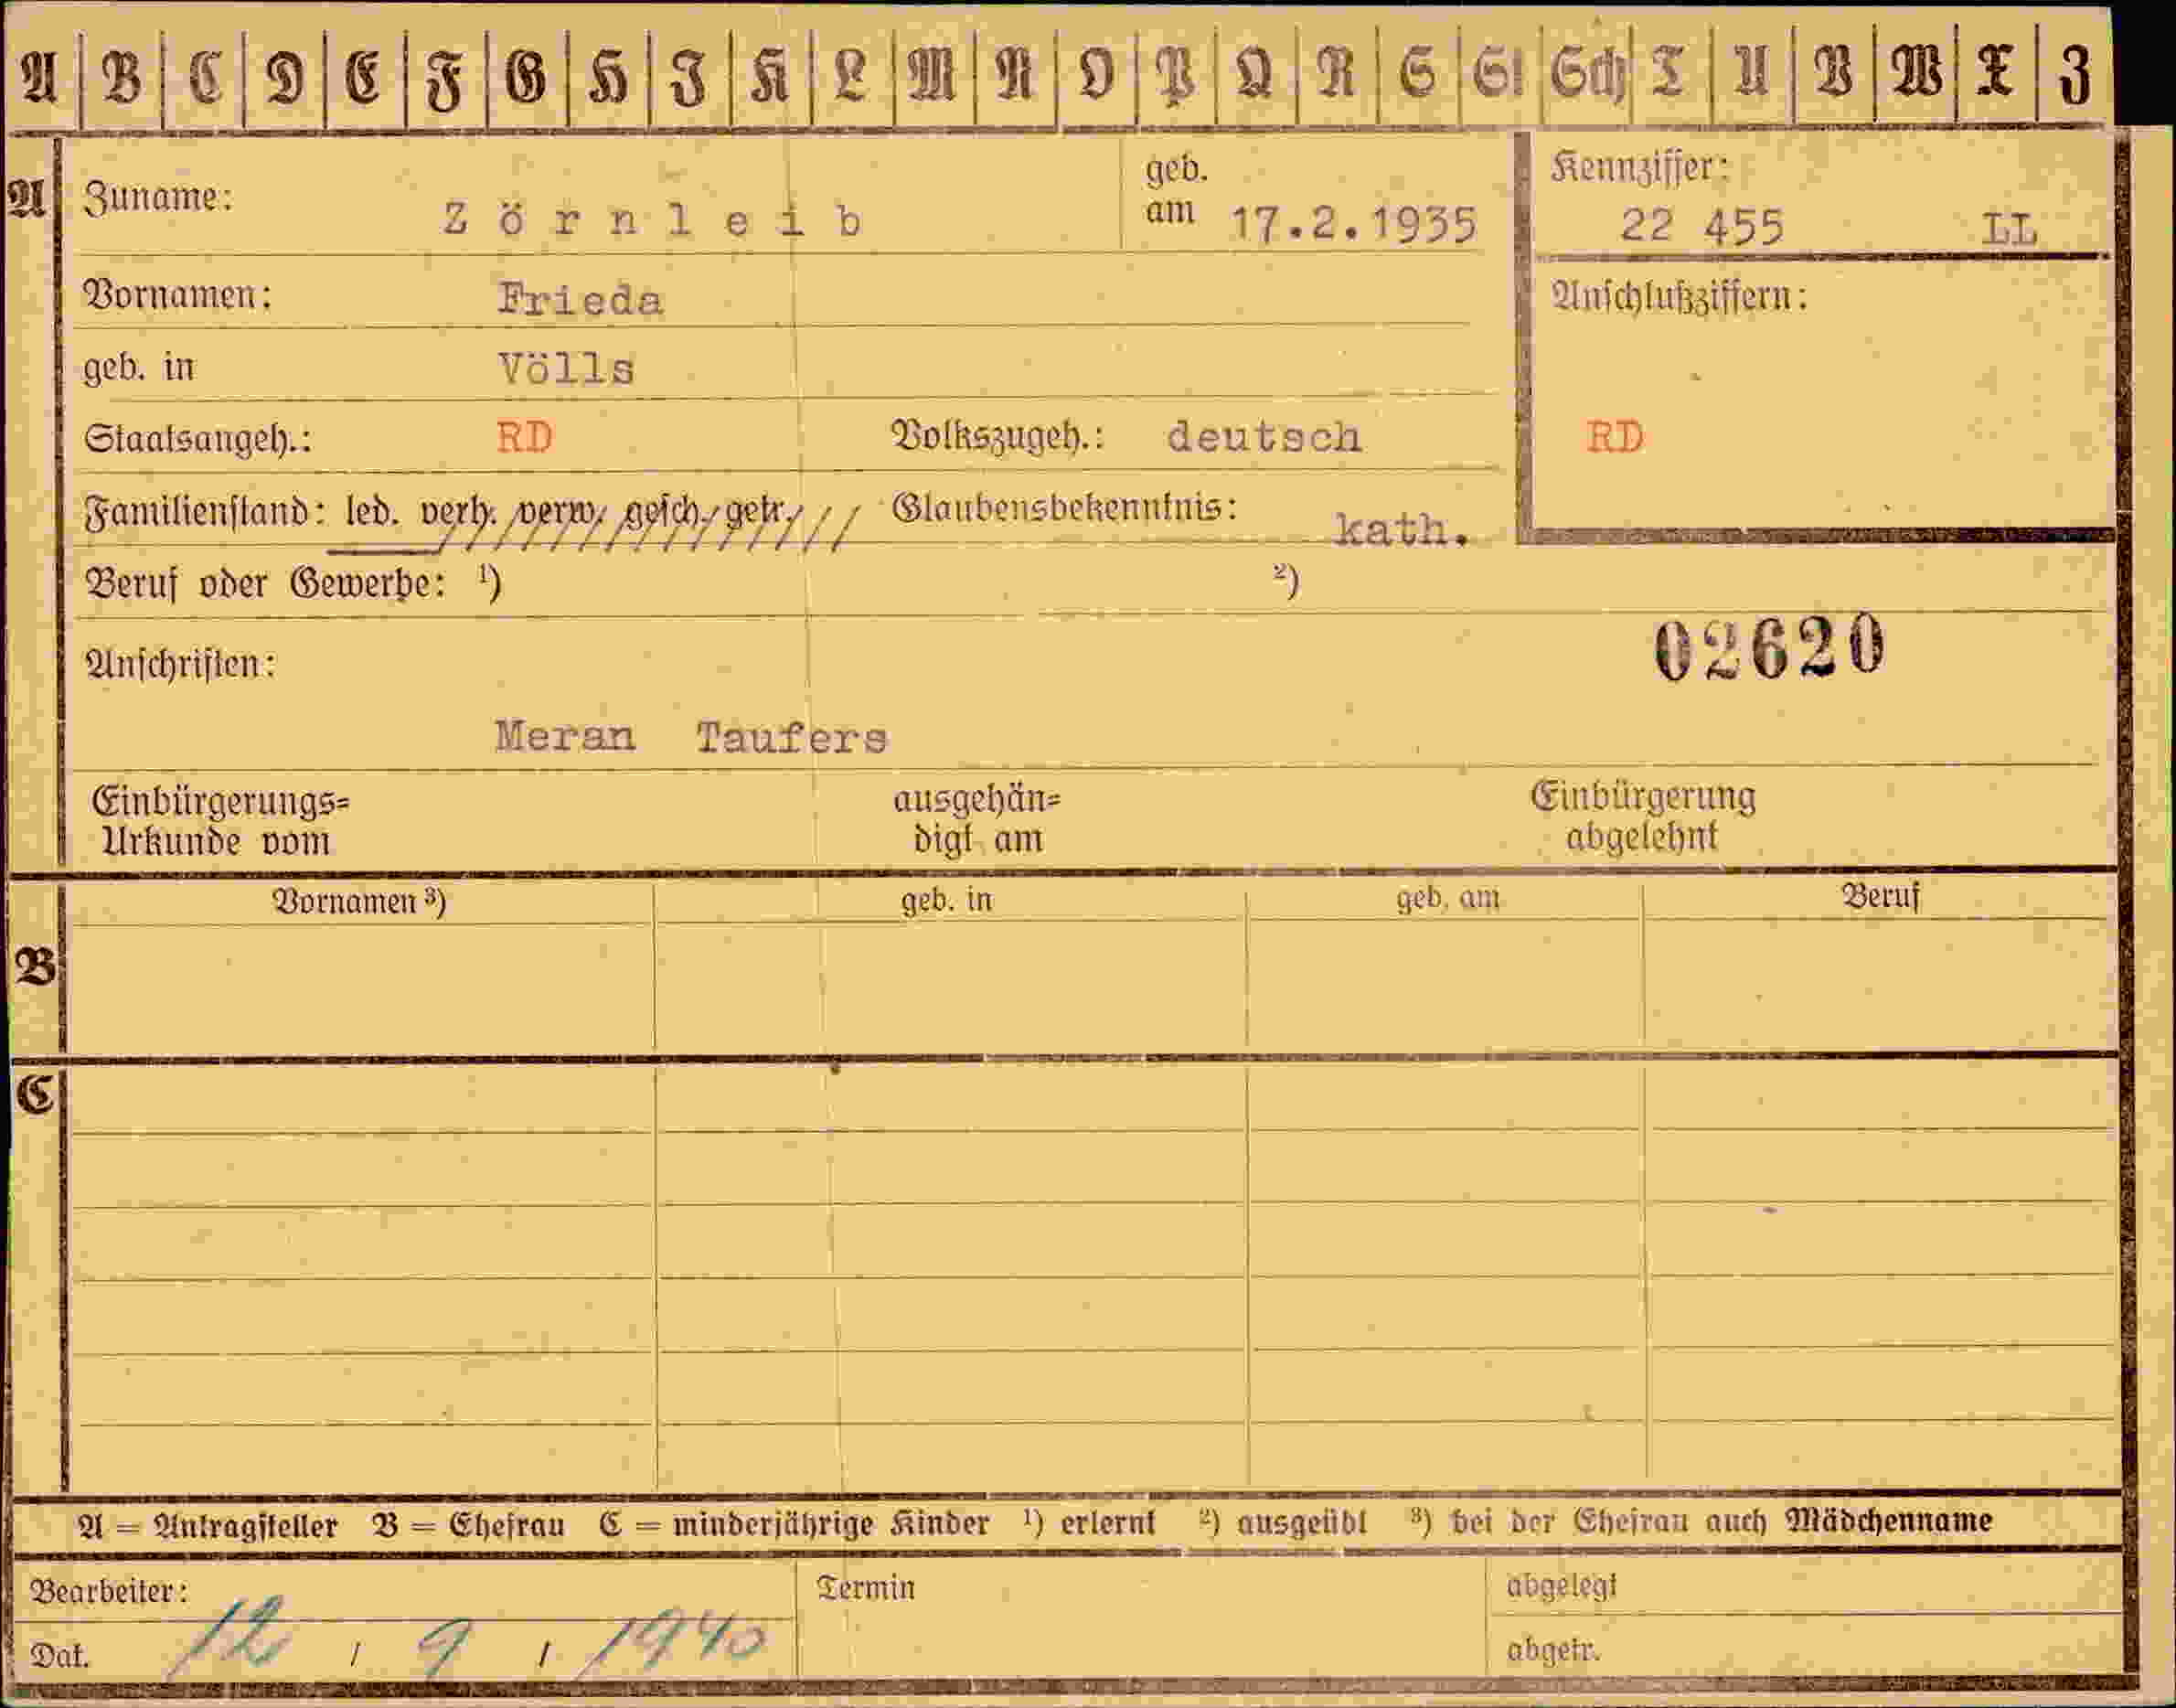 A B C D E F G H J K L M N O P Q R S St Sch T U V W X Z
A
Zuname: Zörnleib geb. am 17.2.1935 Kennziffer: 22 455 LL
Vornamen: Frieda Anschlußziffern:
geb. in Völls
Staatsangeh.: RD Volkszugeh.: deutsch RD
Familienstand: led. verh. verw. gesch. getr. Glaubensbekenntnis: kath.
Beruf oder Gewerbe: ¹) ²)
02620
Anschriften:
Meran Taufers
Einbürgerungs= ausgehän= Einbürgerung
Urkunde vom digt am abgelehnt
Vornamen ³) geb. in geb. am Beruf
B
C
A = Antragsteller B = Ehefrau C = minderjährige Kinder ¹) erlernt ²) ausgeübt ³) bei der Ehefrau auch Mädchenname
Bearbeiter: Termin abgelegt
Dat. 12 / 9 / 1940 abgetr.